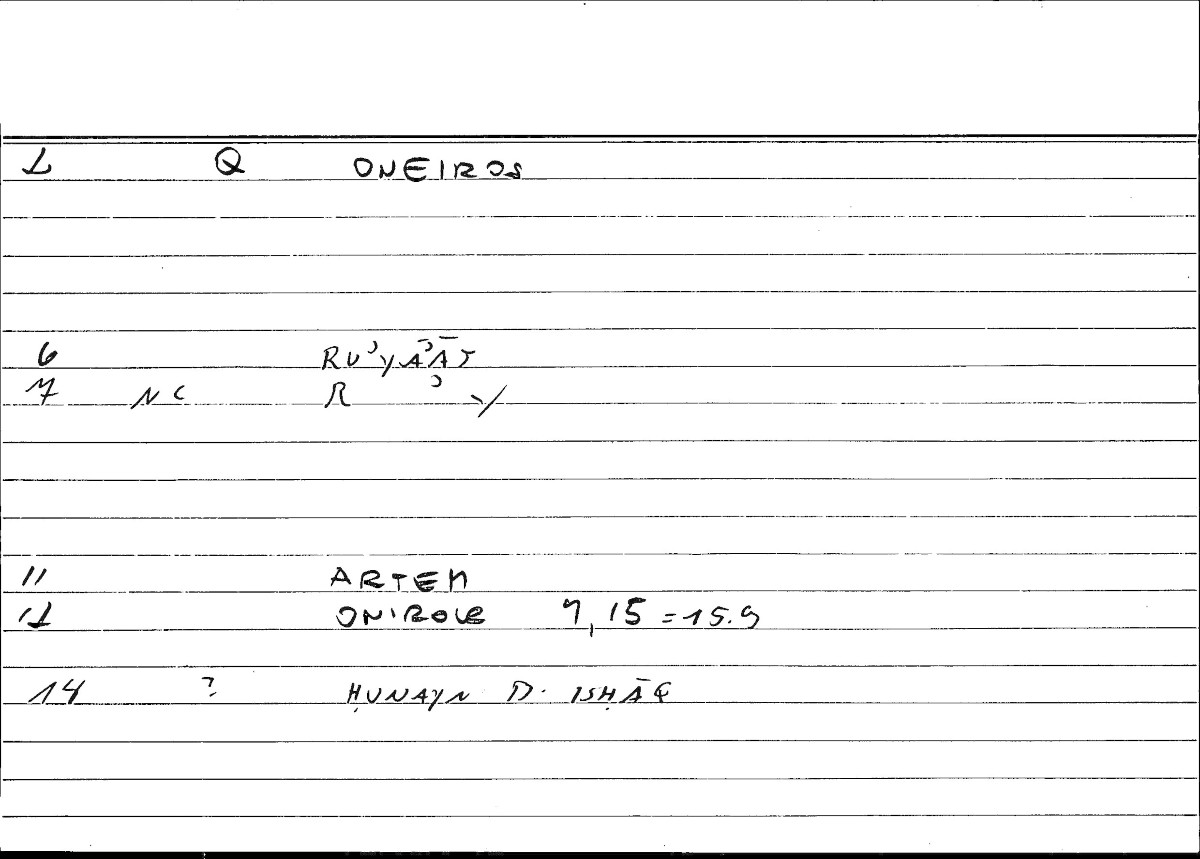 1 Q ONEIROS
6 RUʾYAʾĀT
7 NC R ʾ Y
11 ARTEM
12 ONIROCR 9,15 = 15.9
14 ? ḤUNAYN B. ISḤĀQ